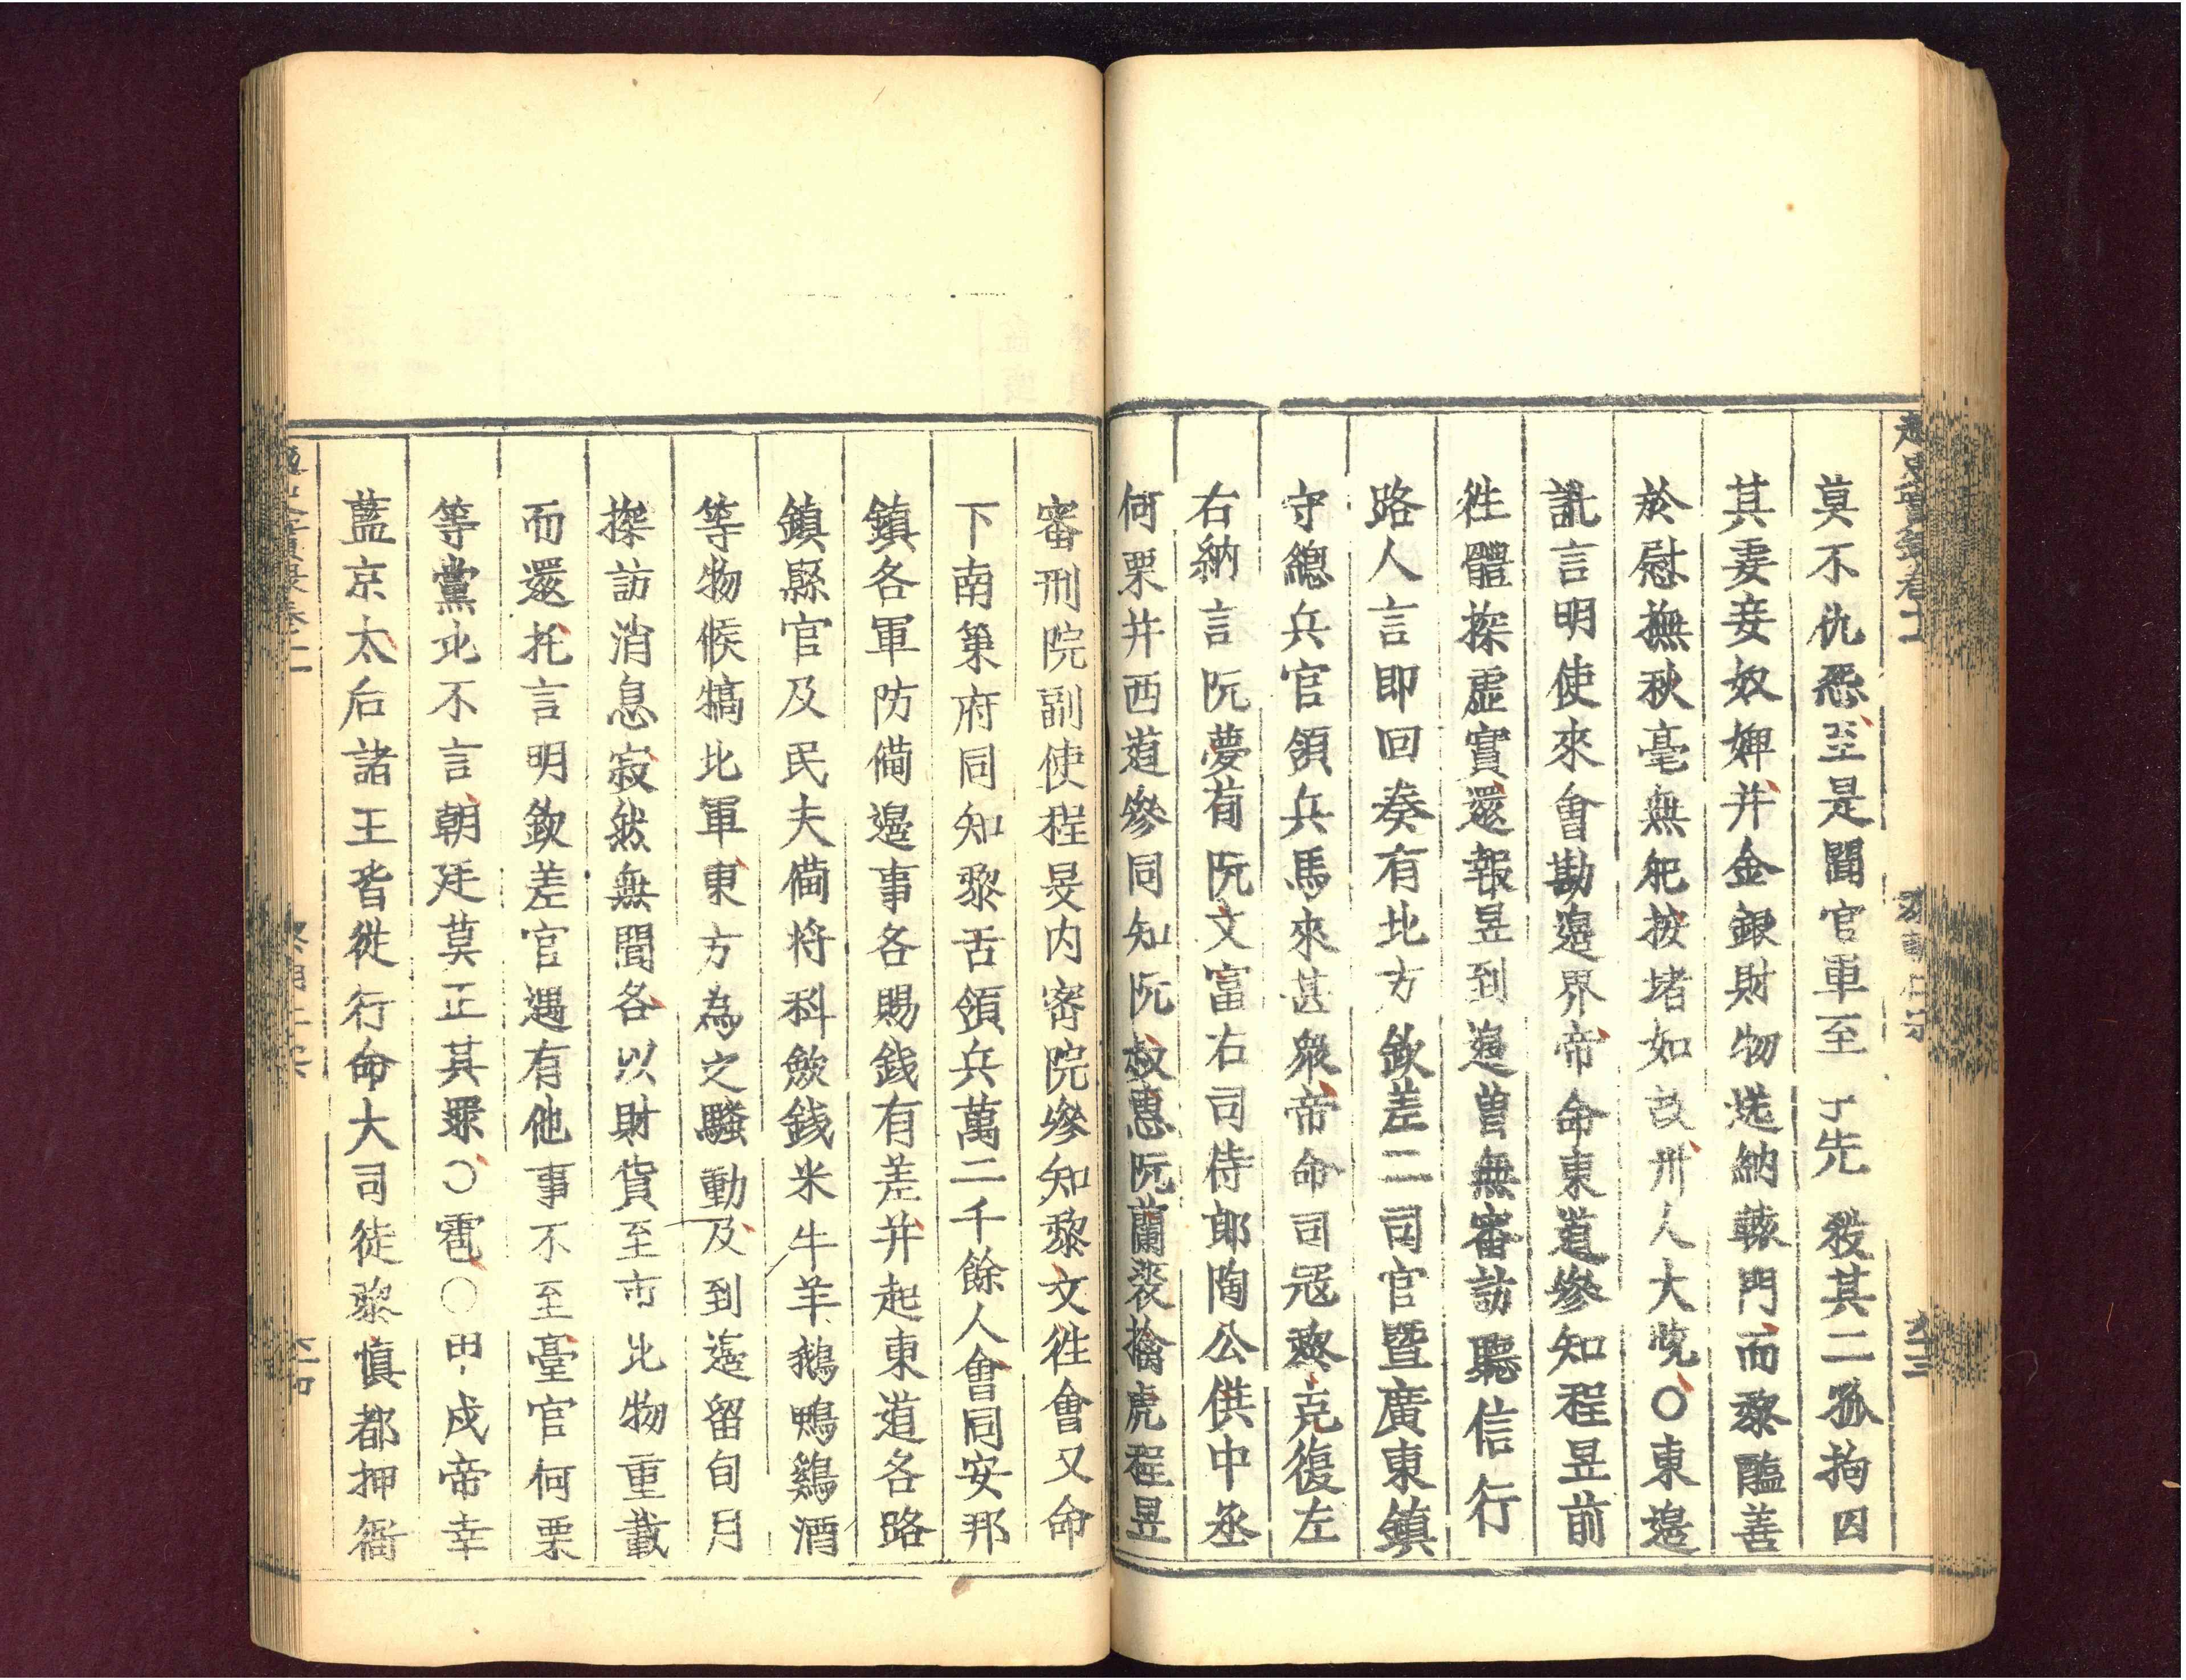 莫不仇怨至是聞官軍至了先殺其二孤拘囚
其妻妾奴婢并金銀財物送納轅門而黎隘善
於慰撫秋毫無犯按堵如故州人大悅○東邊
訛言明使來會勘邊界帝命東道參知程昱前
徃體探虛實還報昱到邊曾無審訪聽信行
路人言即回奏有北方欽差二司官暨廣東鎮
守總兵官領兵馬來甚衆帝命司冦黎克復左
右納言阮夢荀阮文富右司侍郎陶公供中丞
何栗并西道參同知阮叔惠阮蘭裘擒虎程昱
審刑院副使程旻内密院參知黎文徃會又命
下南策府同知黎舌領兵萬二千餘人會同安邦
鎮各軍防備邊事各賜錢有差并起東道各路
鎮縣官及民夫備將科斂錢米牛羊鵝鴨鷄酒
等物候犒北軍東方為之騷動及到邊留旬月
探訪消息寂然無聞各以財貨至市北物重載
而還托言明欽差官遇有他事不至臺官何栗
等黨比不言朝廷莫正其罪○雹○甲戌帝幸
藍京太后諸王皆從行命大司徒黎慎都押衙